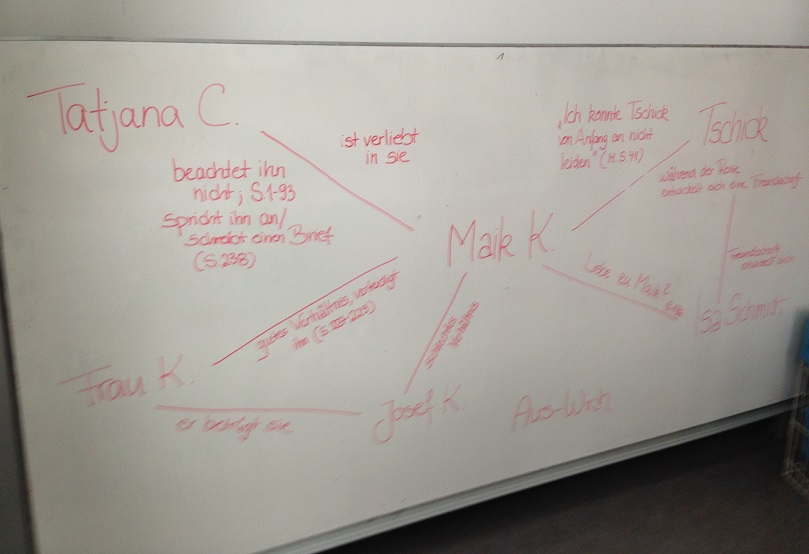 Tatjana C.
ist verliebt
in sie
beachtet ihn
nicht; S.1-93
spricht ihn an/
schreibt einen Brief
(S.238)
„Ich konnte Tschick
von Anfang an nicht
leiden" (M. S.41)
Tschick
während der Reise
entwickelt sich eine Freundschaft
Maik K.
Freundschaft
entwickelt sich
Liebe zu Maik?
Isa Schmidt
gutes Verhältnis, verteidigt
ihn
schlechtes
Verhältnis
Frau K.
er betrügt sie
Josef K.